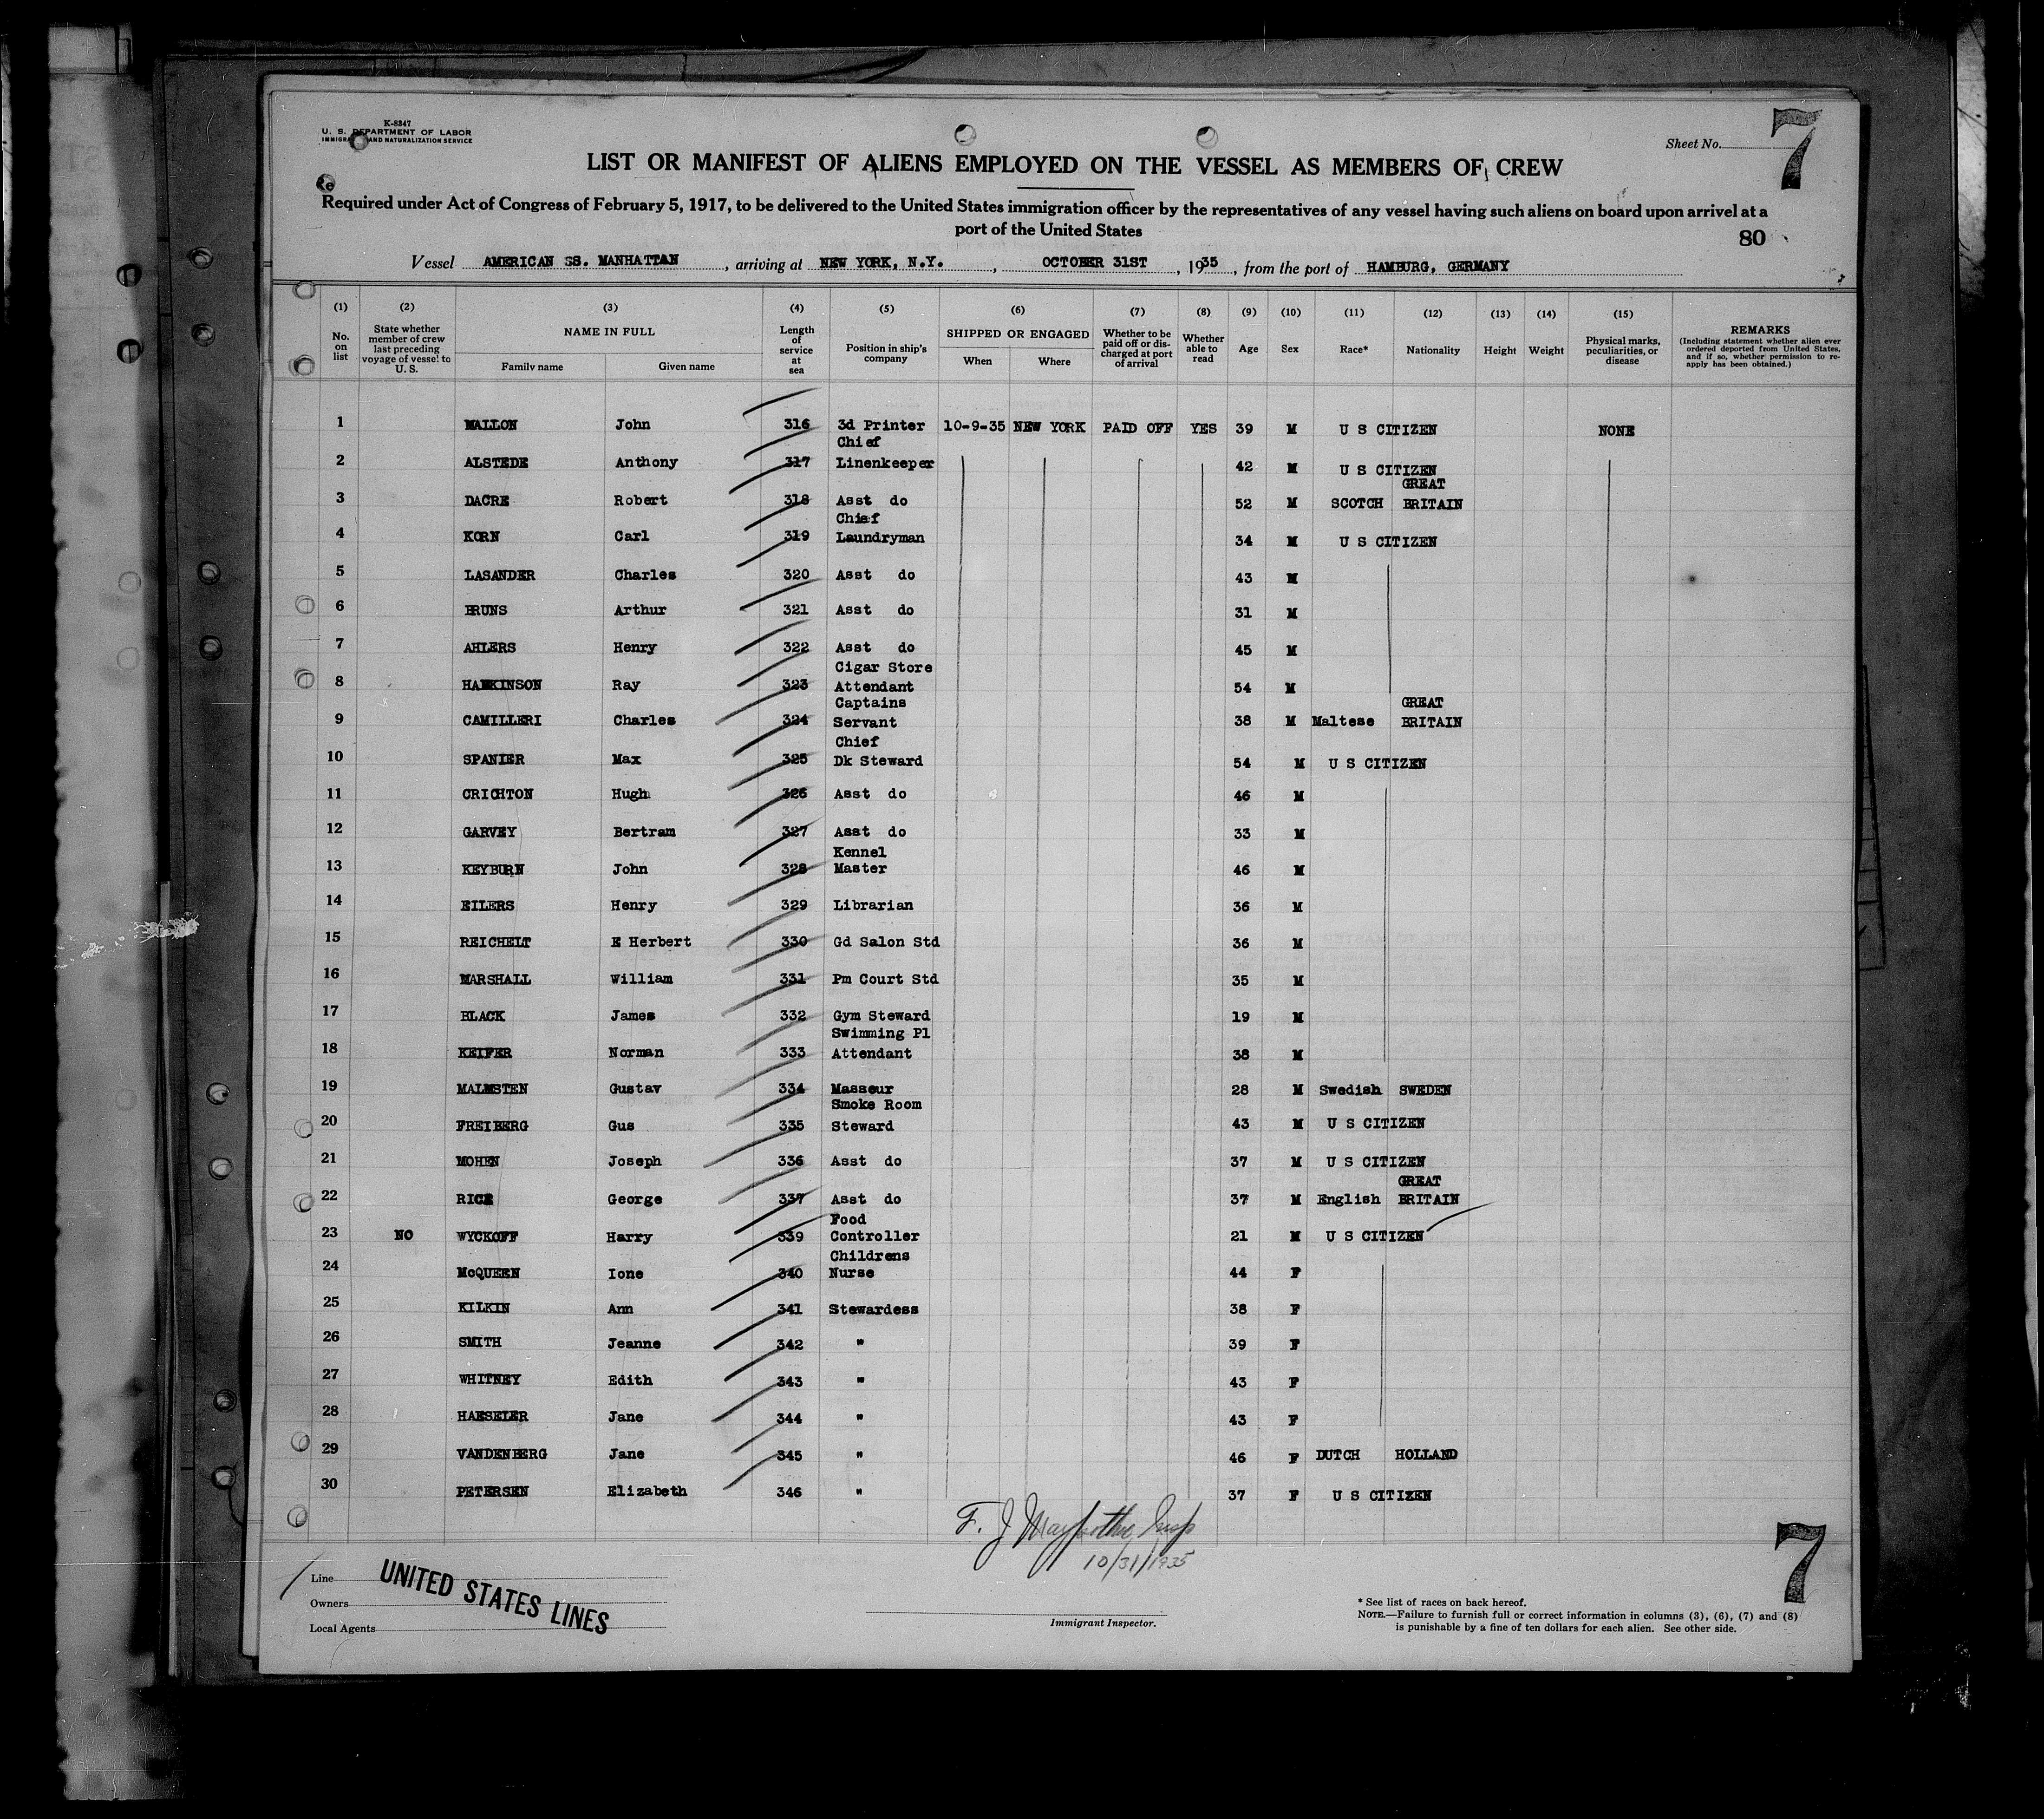 K-8347
U. S. DEPARTMENT OF LABOR
IMMIGRATION AND NATURALIZATION SERVICE
Sheet No. 7
LIST OR MANIFEST OF ALIENS EMPLOYED ON THE VESSEL AS MEMBERS OF CREW
Required under Act of Congress of February 5, 1917, to be delivered to the United States immigration officer by the representatives of any vessel having such aliens on board upon arrival at a
port of the United States
80
Vessel AMERICAN SS. MANHATTAN, arriving at NEW YORK, N.Y., OCTOBER 31ST, 1935, from the port of HAMBURG, GERMANY
(1) (2) (3) (4) (5) (6) (7) (8) (9) (10) (11) (12) (13) (14) (15)
No. on list
State whether member of crew last preceding voyage of vessel to U. S.
NAME IN FULL
Family name Given name
Length of service at sea
Position in ship's company
SHIPPED OR ENGAGED
When Where
Whether to be paid off or discharged at port of arrival
Whether able to read
Age
Sex
Race*
Nationality
Height
Weight
Physical marks, peculiarities, or disease
REMARKS
(Including statement whether alien ever ordered deported from United States, and if so, whether permission to re-apply has been obtained.)
1 MALLON John 316 3d Printer 10-9-35 NEW YORK PAID OFF YES 39 M U S CITIZEN NONE
2 ALSTEDE Anthony 317 Chief Linenkeeper 42 M U S CITIZEN
3 DACRE Robert 318 Asst do 52 M SCOTCH GREAT BRITAIN
4 KORN Carl 319 Chief Laundryman 34 M U S CITIZEN
5 LASANDER Charles 320 Asst do 43 M
6 BRUNS Arthur 321 Asst do 31 M
7 AHLERS Henry 322 Asst do 45 M
8 HAWKINSON Ray 323 Cigar Store Attendant 54 M
9 CAMILLERI Charles 324 Captains Servant 38 M Maltese GREAT BRITAIN
10 SPANIER Max 325 Chief Dk Steward 54 M U S CITIZEN
11 CRICHTON Hugh 326 Asst do 46 M
12 GARVEY Bertram 327 Asst do 33 M
13 KEYBURN John 328 Kennel Master 46 M
14 EILERS Henry 329 Librarian 36 M
15 REICHELT E Herbert 330 Gd Salon Std 36 M
16 MARSHALL William 331 Pm Court Std 35 M
17 BLACK James 332 Gym Steward 19 M
18 KEIFER Norman 333 Swimming Pl Attendant 38 M
19 MALMSTEN Gustav 334 Masseur 28 M Swedish SWEDEN
20 FREIBERG Gus 335 Smoke Room Steward 43 M U S CITIZEN
21 MOHEN Joseph 336 Asst do 37 M U S CITIZEN
22 RICE George 337 Asst do 37 M English GREAT BRITAIN
23 NO WYCKOFF Harry 339 Food Controller 21 M U S CITIZEN
24 McQUEEN Ione 340 Childrens Nurse 44 F
25 KILKIN Ann 341 Stewardess 38 F
26 SMITH Jeanne 342 " 39 F
27 WHITNEY Edith 343 " 43 F
28 HAESELER Jane 344 " 43 F
29 VANDENBERG Jane 345 " 46 F DUTCH HOLLAND
30 PETERSEN Elizabeth 346 " 37 F U S CITIZEN
F. J.
10/31/1935
7
Line
Owners
Local Agents
UNITED STATES LINES
Immigrant Inspector.
* See list of races on back hereof.
NOTE.—Failure to furnish full or correct information in columns (3), (6), (7) and (8)
is punishable by a fine of ten dollars for each alien. See other side.